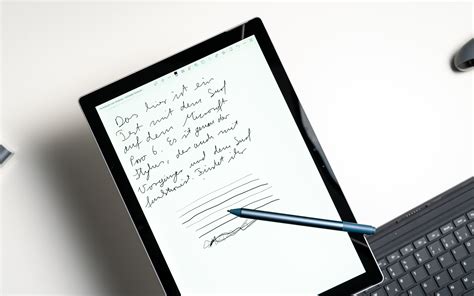 Das hier ist ein
Test mit dem Surf
auf dem Microsoft
Pro 6. Es ist genau der
Stylus, der auch mit
Vorgänger und dem Surf
funktioniert. Findet ihr